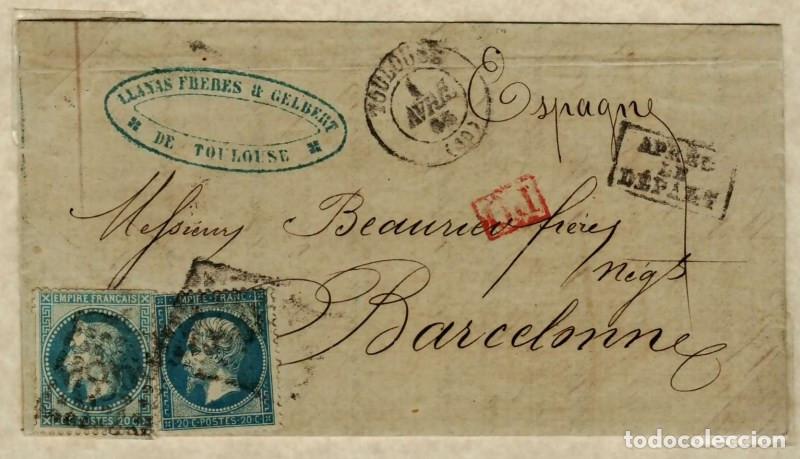 LLANAS FRERES & GELBERT
DE TOULOUSE
TOULOUSE
AVRIL
(30)
Espagne
APRÈS
LE
DÉPART
P.D.
Messieurs Beaurieu frères
négts
Barcelonne
EMPIRE FRANÇAIS
EMPIRE FRANC
POSTES 20 C
20 C POSTES 20 C
todocoleccion